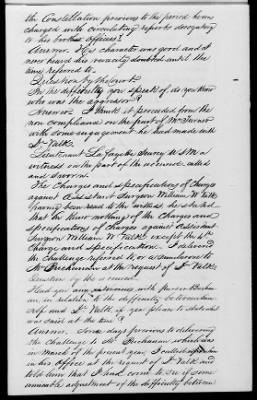 the Constellation previous to the period named
charged with circulating reports derogatory
to his brother officers?
Answer. His character was good and I
never heard his veracity doubted until the
time referred to.
Question by the Court.
In the difficulty you speak of do you know
who was the aggressor?
Answer. I think it proceeded from the
non compliance on the part of Mr Turner
with some engagement he had made with
Dr Valk.
Lieutenant Lafayette Searcy U.S.M. a
witness on the part of the accused called
and sworn.
The Charges and specifications of charges
against Assistant Surgeon William W Valk
having been read at the witness he stated
that he knew nothing of the Charges and
specifications of charges against Assistant
Surgeon William W Valk except the
Charge and specification. I delivered
the challenge referred to, or a
Mr Buchanan at the request of Dr Valk.
Question by the accused
Had you any interviews with Purser Buchan-
an, in relation to the difficulty between him-
self and Dr Valk if yea please to state what
was said at the time?
Answer. Some days previous to delivering
the challenge to Mr Buchanan which was
in March of the present year, I called upon him
in his Office at the request of Dr Valk and
told him that I had come to see if some
amicable adjustment of the difficulty between